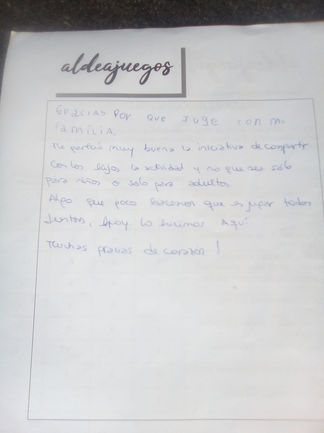 aldeajuegos
Gracias Por que Juge con mi
familia.
Me pareció muy buena la iniciativa de compartir
con los hijos la actividad y no que sea sólo
para niños o solo para adultos.
Algo que poco hacemos que es jugar todos
juntos, hoy lo hicimos Aquí
Muchas gracias de corazón!